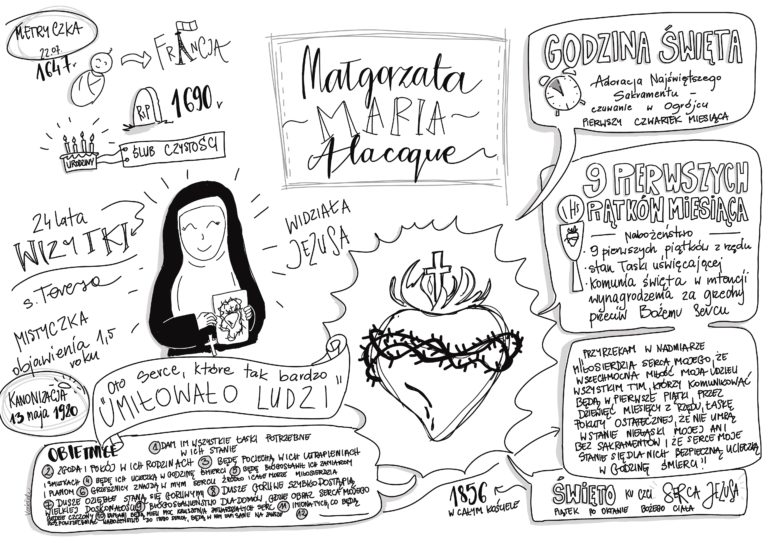 METRYCZKA
22.07.
1647r.
FRANCJA
RIP
1690r
URODZINY
ŚLUB CZYSTOŚCI
24 lata
WIZYTKI
s. Teresa
MISTYCZKA
objawienia 1,5
roku
KANONIZACJA
13 maja 1920
Małgorzata
~MARIA~
Alacoque
WIDZIAŁA
JEZUSA
"Oto serce, które tak bardzo
UMIŁOWAŁO LUDZI"
OBIETNICE
① DAM IM WSZYSTKIE ŁASKI POTRZEBNE
W ICH STANIE
② ZGODA I POKÓJ W ICH RODZINACH ③ BĘDĘ POCIECHĄ W ICH UTRAPIENIACH
I SMUTKACH ④ BĘDĘ ICH UCIECZKĄ W GODZINĘ ŚMIERCI ⑤ BĘDĘ BŁOGOSŁAWIŁ ICH ZAMIAROM
I PLANOM ⑥ GRZESZNICY ZNAJDĄ W MYM SERCU ŹRÓDŁO I CAŁE MORZE MIŁOSIERDZIA
⑦ DUSZE OZIĘBŁE STANĄ SIĘ GORLIWYMI ⑧ DUSZE GORLIWE SZYBKO DOSTĄPIĄ
WIELKIEJ DOSKONAŁOŚCI ⑨ BŁOGOSŁAWIEŃSTWO DLA DOMÓW GDZIE OBRAZ SERCA MOJEGO
BĘDZIE CZCZONY ⑩ KAPŁANI BĘDĄ MIELI MOC KRUSZENIA ZATWARDZIAŁYCH SERC ⑪ IMIONA TYCH, CO BĘDĄ
ROZPOWSZECHNIAĆ NABOŻEŃSTWO DO TEGO SERCA, BĘDĄ W NIM ZAPISANE NA ZAWSZE ⑫
GODZINA ŚWIĘTA
Adoracja Najświętszego
Sakramentu -
czuwanie w Ogrójcu
PIERWSZY CZWARTEK MIESIĄCA
9 PIERWSZYCH
PIĄTKÓW MIESIĄCA
IHS
Nabożeństwo
· 9 pierwszych piątków z rzędu
· stan łaski uświęcającej
· komunia święta w intencji
wynagrodzenia za grzechy
przeciw Bożemu Sercu
PRZYRZEKAM W NADMIARZE
MIŁOSIERDZIA SERCA MOJEGO, ŻE
WSZECHMOCNA MIŁOŚĆ MOJA UDZIELI
WSZYSTKIM TYM, KTÓRZY KOMUNIKOWAĆ
BĘDĄ W PIERWSZE PIĄTKI PRZEZ
DZIEWIĘĆ MIESIĘCY Z RZĘDU, ŁASKĘ
POKUTY OSTATECZNEJ, ŻE NIE UMRĄ
W STANIE NIEŁASKI MOJEJ ANI
BEZ SAKRAMENTÓW I ŻE SERCE MOJE
STANIE SIĘ DLA NICH BEZPIECZNĄ UCIECZKĄ
W GODZINĘ ŚMIERCI"
1856r
W CAŁYM KOŚCIELE
ŚWIĘTO KU CZCI SERCA JEZUSA
PIĄTEK PO OKTAWIE BOŻEGO CIAŁA